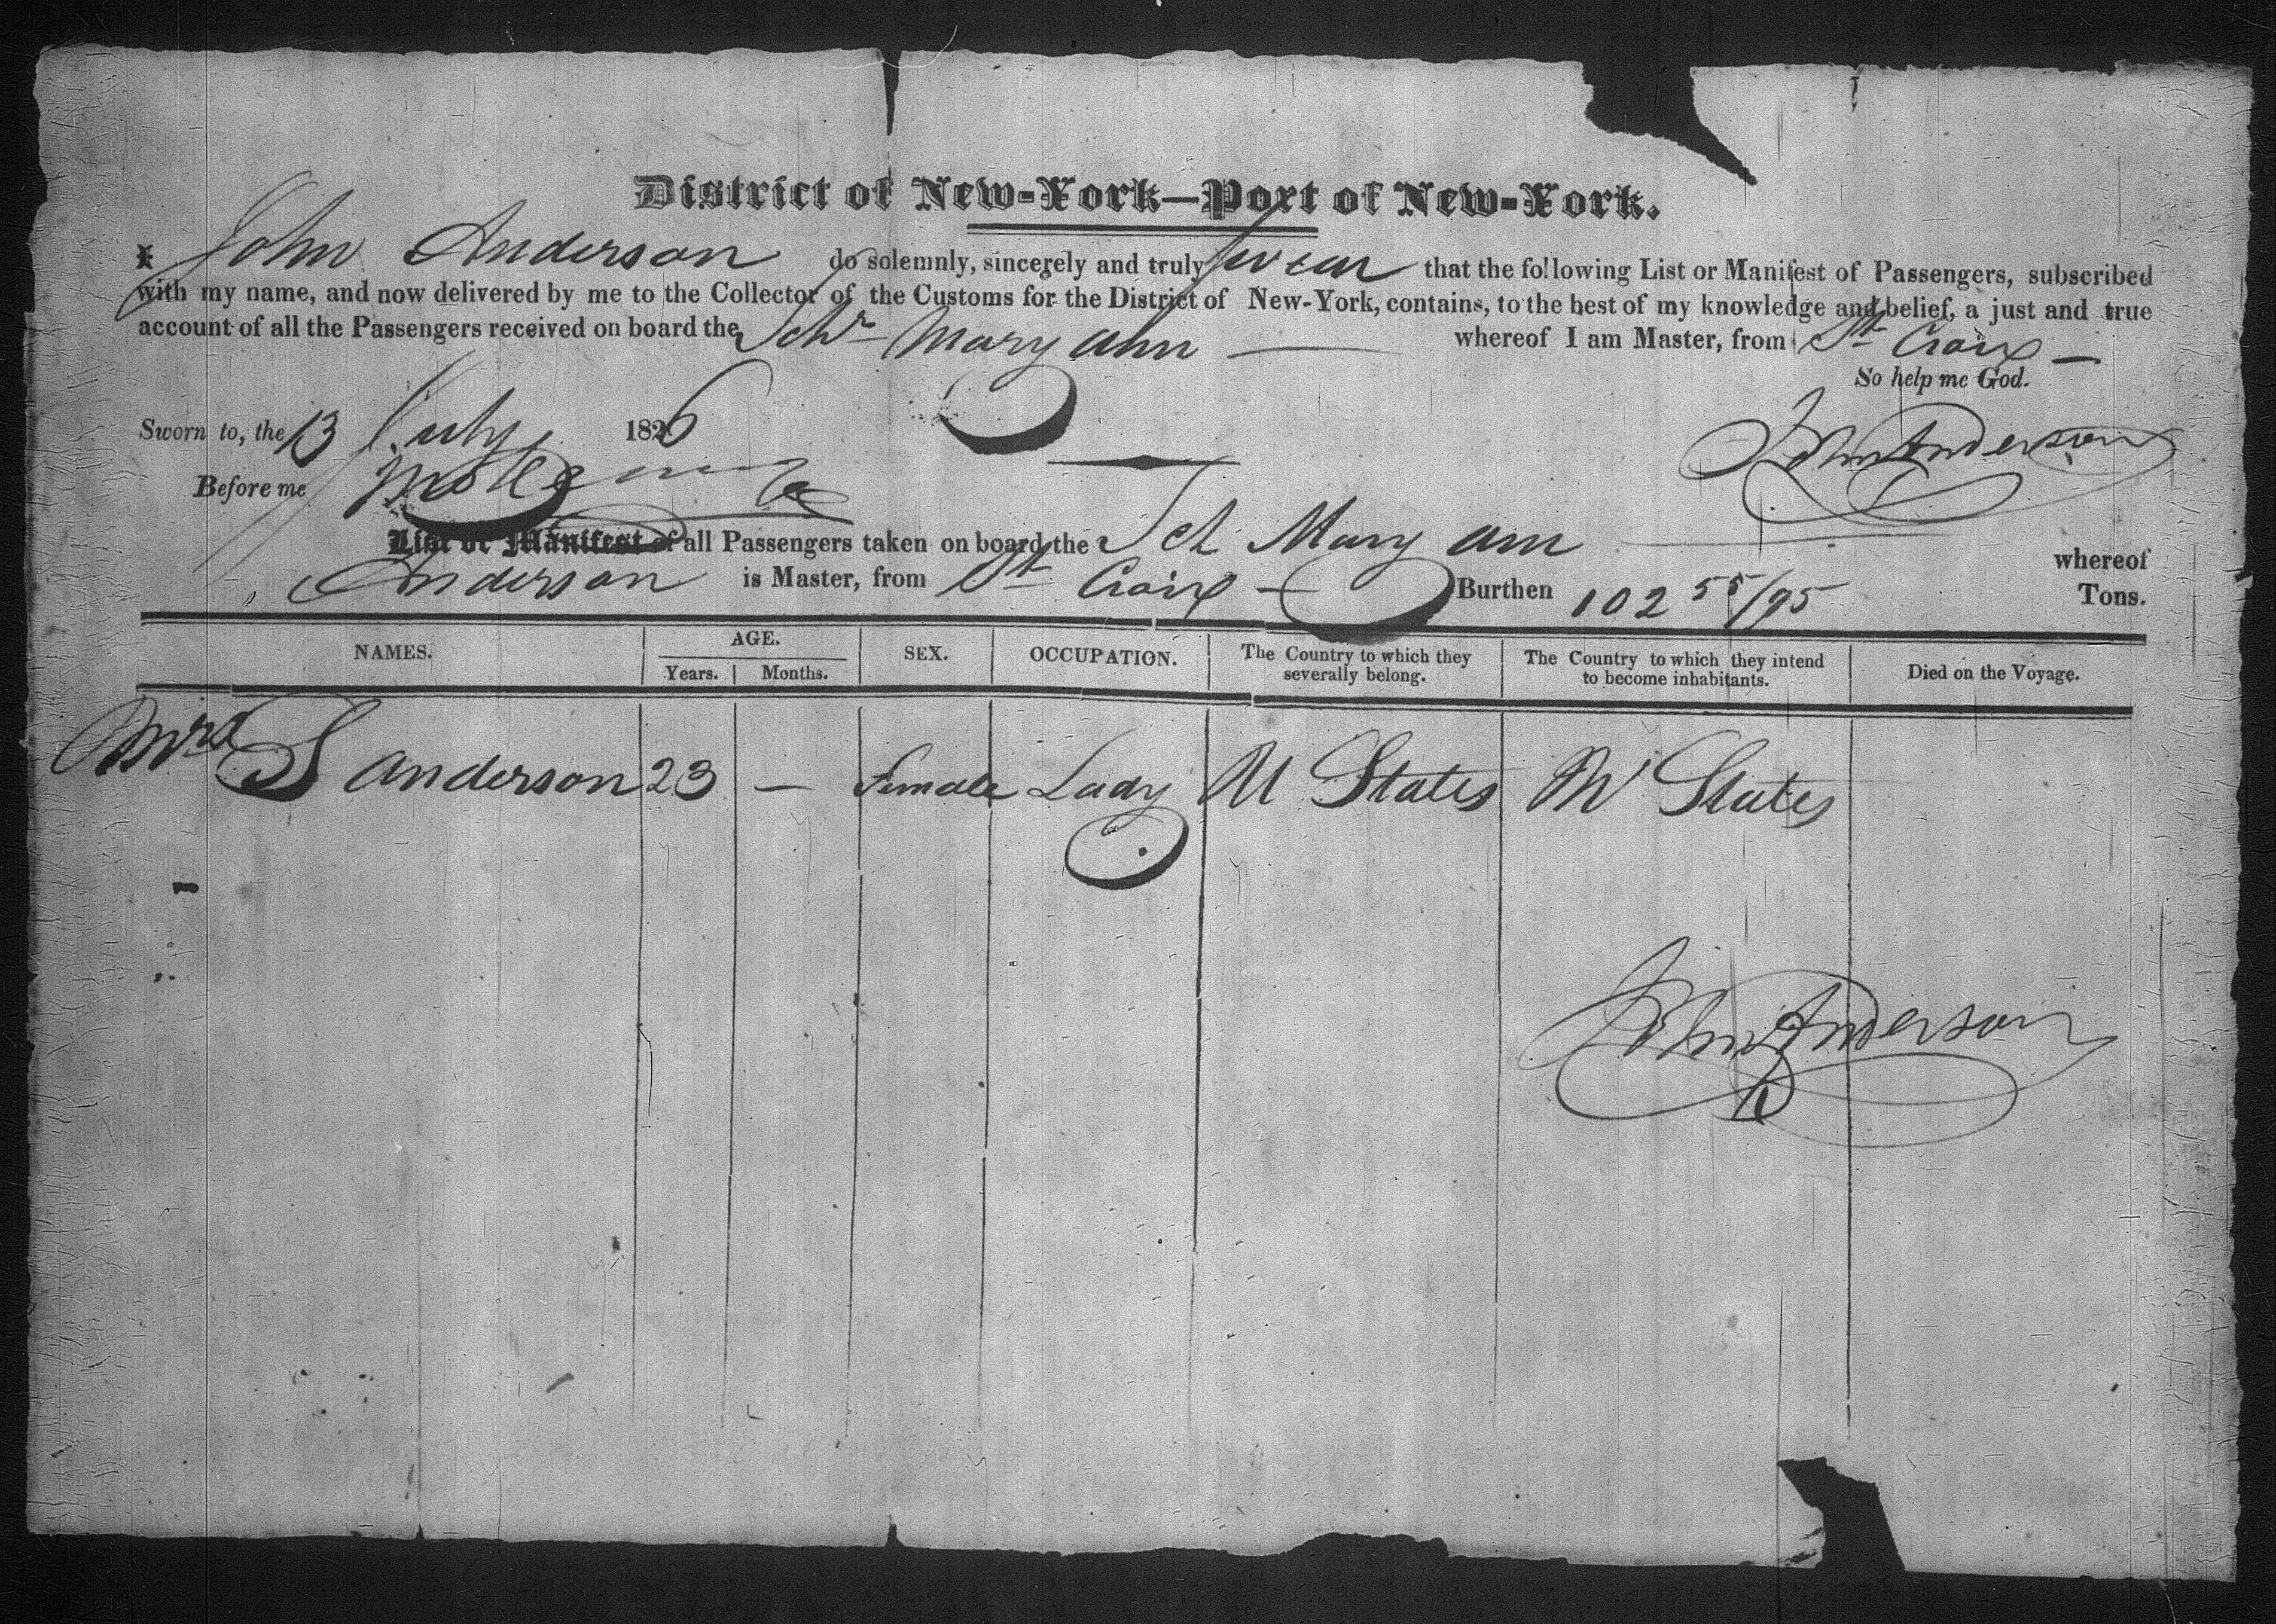 District of New-York—Port of New-York.
I John Anderson do solemnly, sincerely and truly swear that the following List or Manifest of Passengers, subscribed
with my name, and now delivered by me to the Collector of the Customs for the District of New-York, contains, to the best of my knowledge and belief, a just and true
account of all the Passengers received on board the Schr Mary Ann whereof I am Master, from St Croix —
So help me God.
Sworn to, the 13 July 1826
John Anderson
Before me
List or Manifest of all Passengers taken on board the Sch Mary Ann whereof
Anderson is Master, from St Croix — Burthen 102 55/95 Tons.
NAMES. AGE. SEX. OCCUPATION. The Country to which they severally belong. The Country to which they intend to become inhabitants. Died on the Voyage.
Years. Months.
Mrs S Anderson 23 — Female Lady U States U States
John Anderson